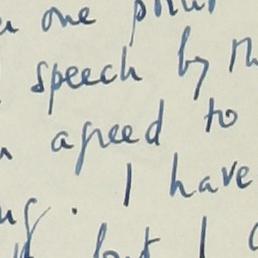 one
speech by
agreed to
. I have
but I